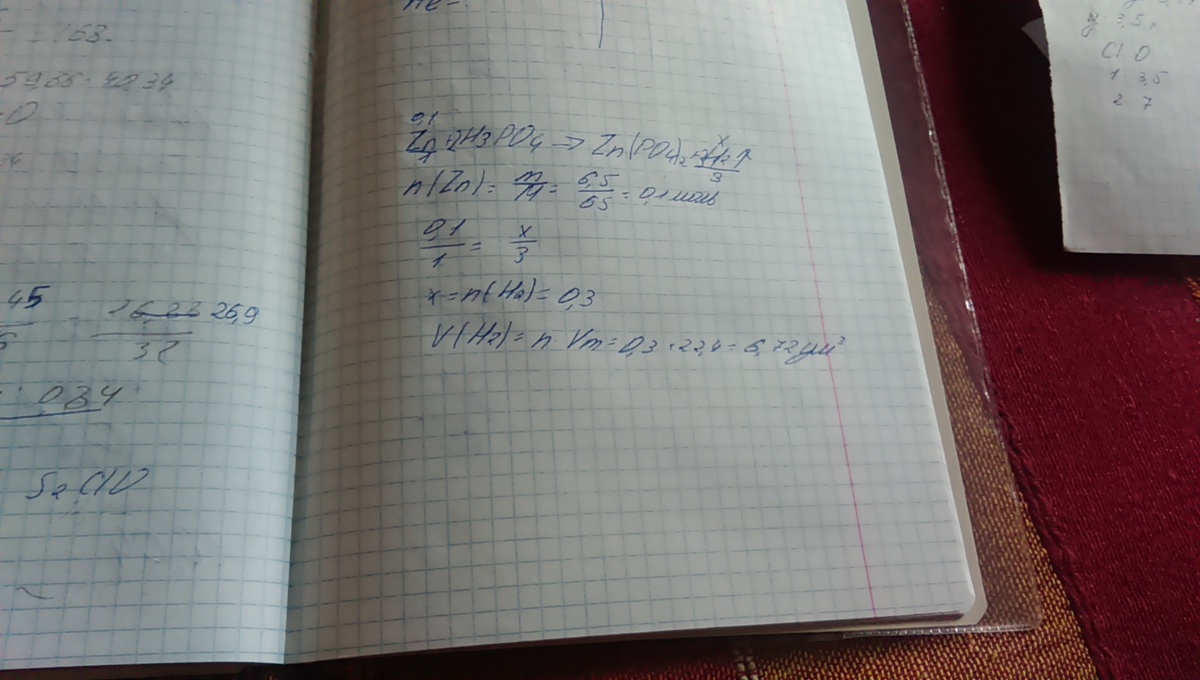 168
5966 · 4234
0
45
26,9
32
034
S₂ClO
0,1
Zn+2H3PO4 → Zn(PO4)2 + H2↑
1 3
n(Zn) = m/M = 6,5/65 = 0,1 моль
0,1/1 = x/3
x = n(H2) = 0,3
V(H2) = n · Vm = 0,3 · 22,4 = 6,72 дм³
y = 3,5x
Cl O
1 3,5
2 7